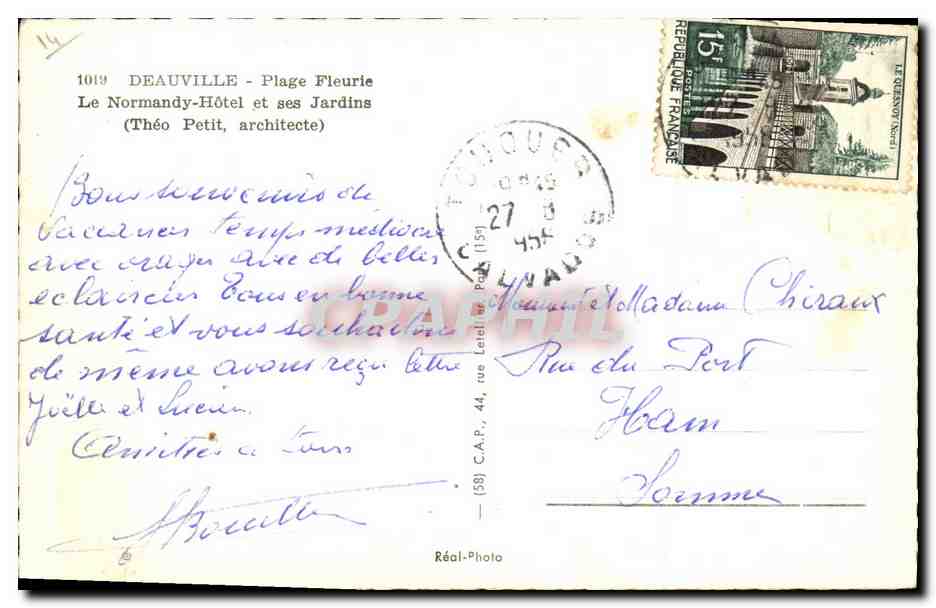 14
1019 DEAUVILLE - Plage Fleurie
Le Normandy-Hôtel et ses Jardins
(Théo Petit, architecte)
Bons souvenirs de
vacances temps médiocre
avec orages avec de belles
eclaircies Tous en bonne
santé et vous souhaitons
de même avons reçu lettre
Joëlle et Lucien
Amitiés a tous
(58) C.A.P., 44, rue Letellier, Paris (15e)
Réal-Photo
TOUQUES
27 8
CALVADOS
15F
POSTES
REPUBLIQUE FRANÇAISE
LE QUESNOY (Nord)
Monsieur et Madame Chiraux
Rue du Port
Ham
Somme
CPAPHIL